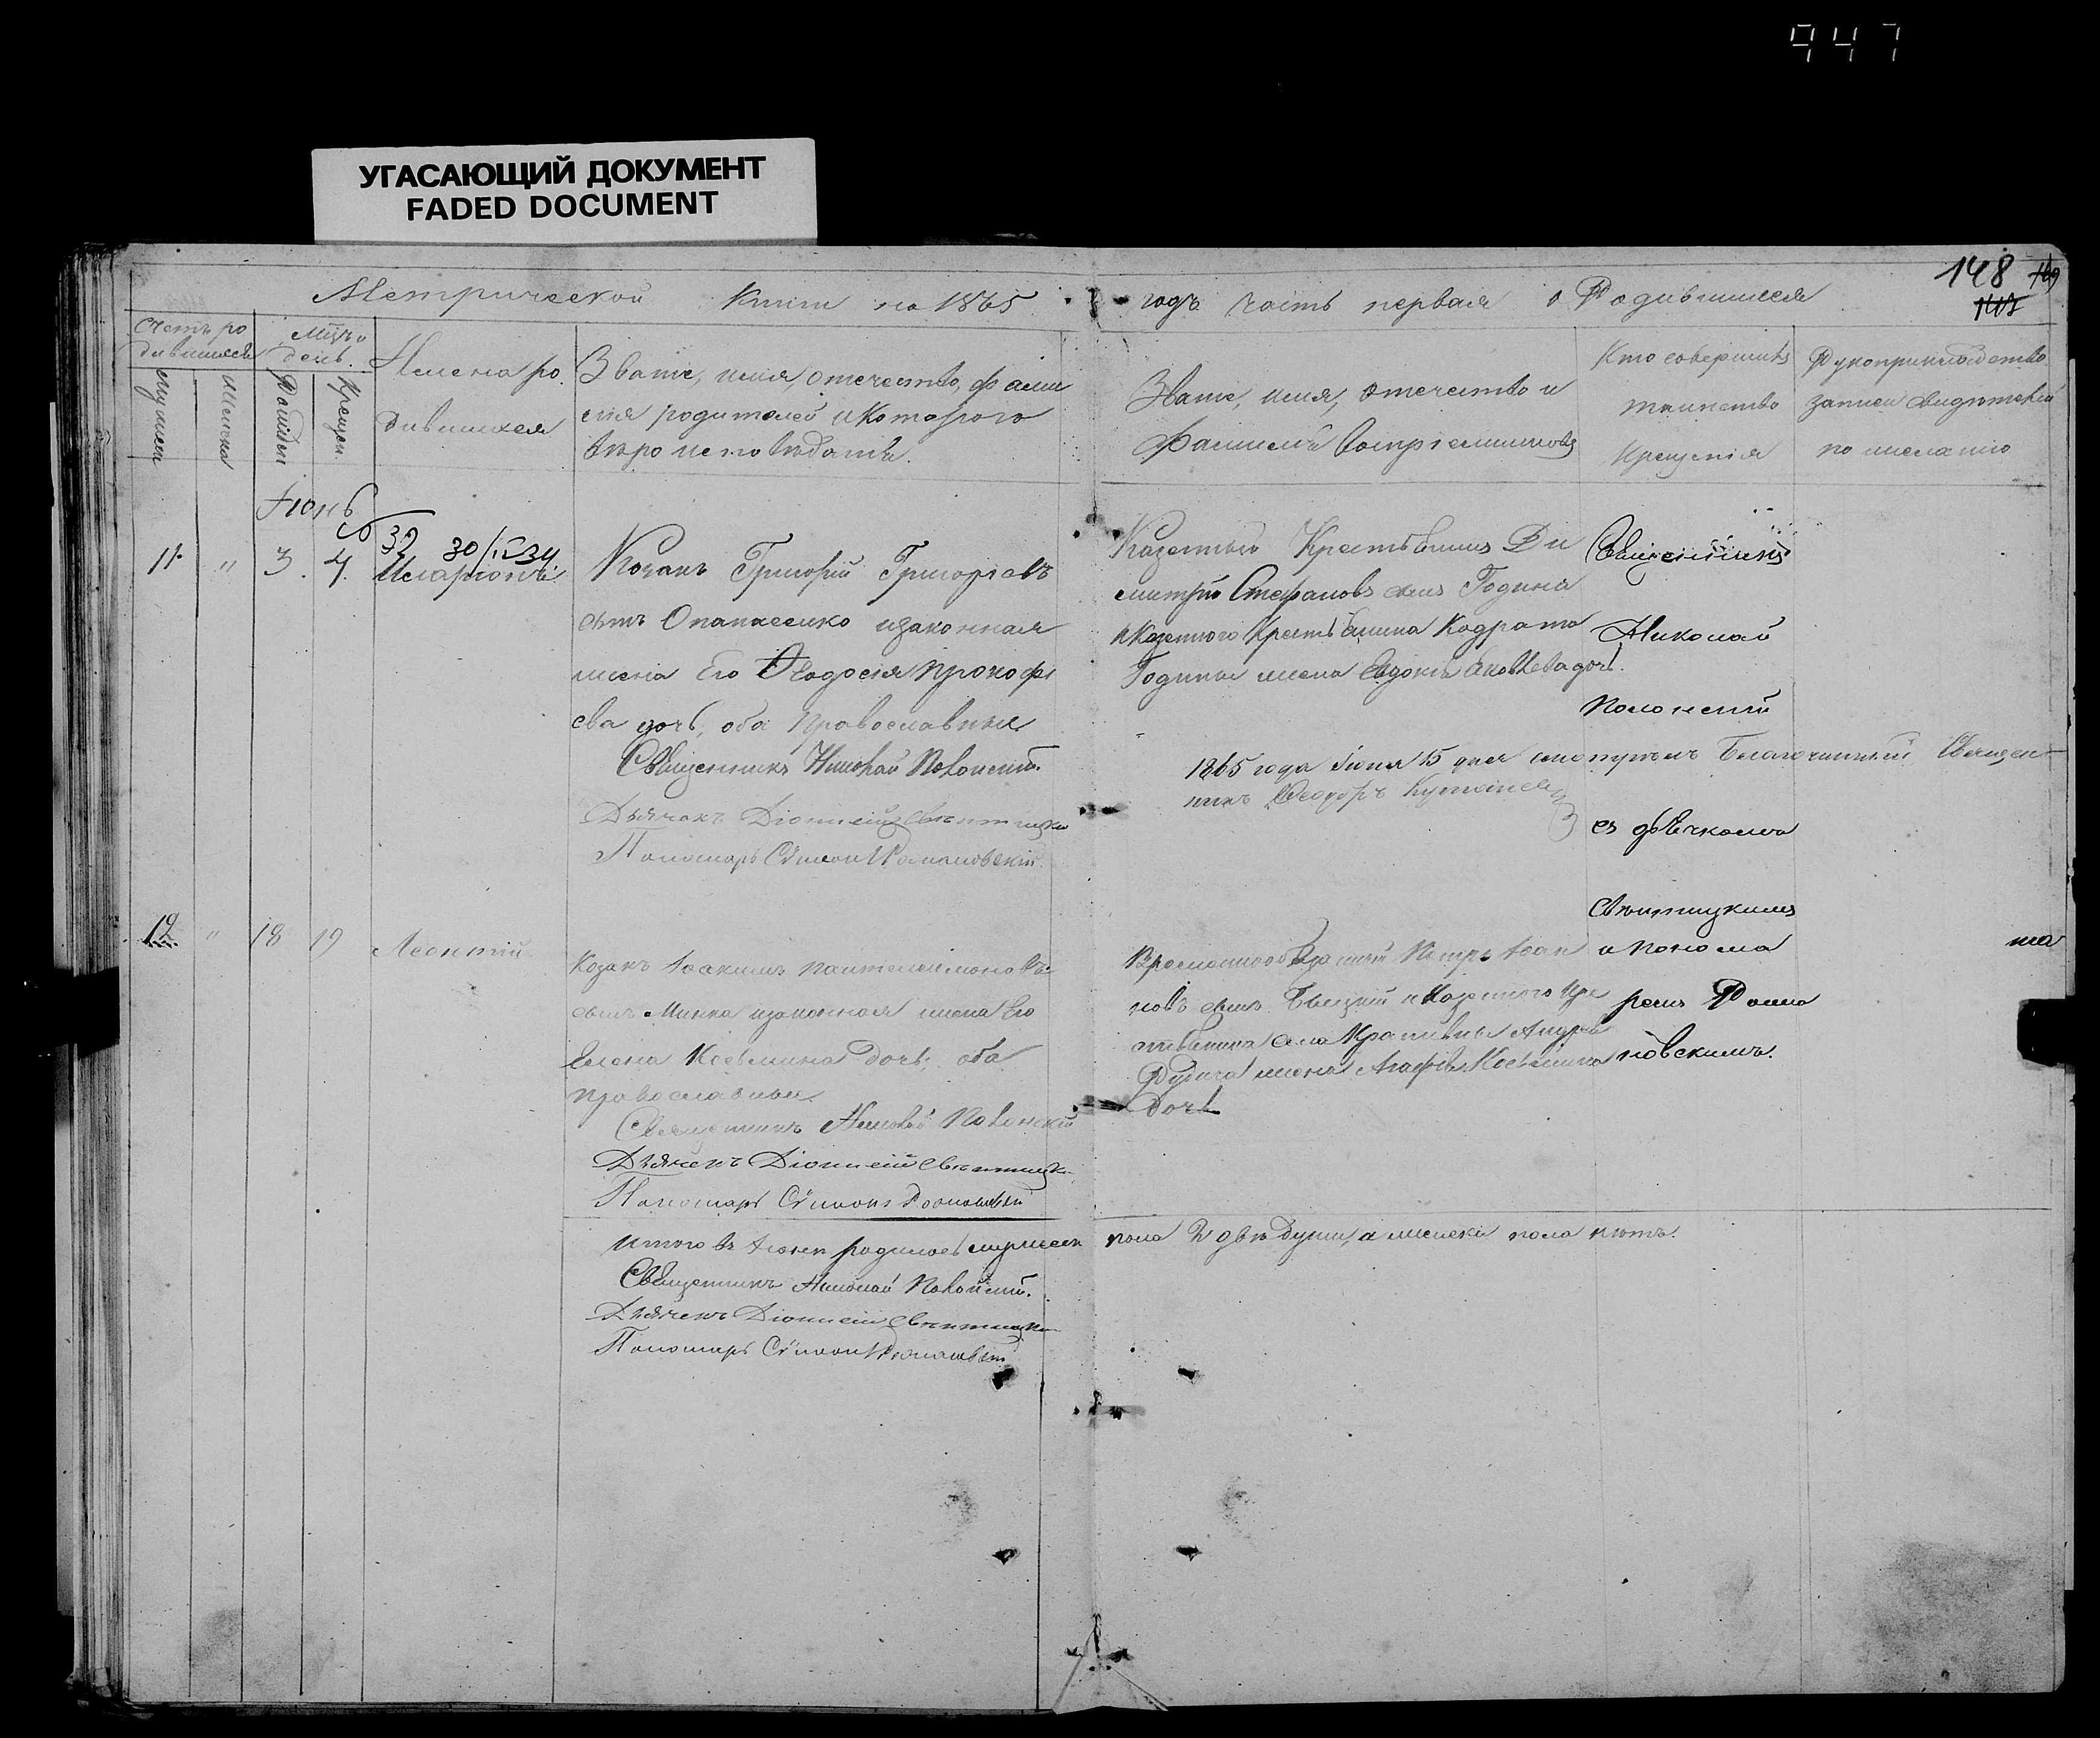 947
УГАСАЮЩИЙ ДОКУМЕНТ
FADED DOCUMENT
148
Метрической Книги на 1865 годъ часть первая о Родившихся
Счетъ ро
дившихся
Мужеск
Женска
Мцъ и
день.
Рожден
Крещен.
Имена ро
дившихся
Званіе, имя, отечество, фами
лія родителей и Котораго
вѣро исповѣданія.
Званіе, имя, отечество и
Фамилія Воспріемниковъ
Кто совершилъ
таинство
Крещенія
Рукоприкладство
записи свидѣтелей
по желанію
Іюнь
11. " 3. 4.
Иларіонъ
Козакъ Григорій Григоріевъ
сынъ Опанасенко и законная
жена Его Ѳеодосія Прокофі
ева дочь, оба Православные
Священникъ Николай Полонскій.
Дьячекъ Діонисій Свѣнтицкій
Пономарь Сѵмеон Романовскій
Казенный Крестьянинъ Ди
митрій Стефановъ сынъ Година
и Казенного Крестьянина Кодрата
Годины жена Евдокія Яковлева дочь.
Священникъ
Николай
Полонскій
1865 года Іюня 15 дня смотрѣлъ Благочинный Священ-
никъ Ѳеодоръ
съ дьячкомъ
Свѣнтицкимъ
и понома
ремъ Рома
новскимъ.
12. " 18 19 Леонтій
Козакъ Іоакимъ Пантелеимоновъ
сынъ Минка и законная жена Его
Елена Косьмина дочь; оба
православные
Священникъ Николай Полонскій
Дьячекъ Діонисій Свѣнтицкій
Пономарь Сѵмеонъ Романовскій
Временнообязанный Петръ Іоан
новъ сынъ и Казенного Кре
стьянина села Крапивны Андрея
Рудича жена Агафія Косьмина
дочь
Итого въ Іюнѣ родилось мужеска пола 2 двѣ души, а женска пола нѣтъ.
Священникъ Николай Полонскій.
Дьячекъ Діонисій Свѣнтицкій
Пономарь Сѵмеон Романовскій